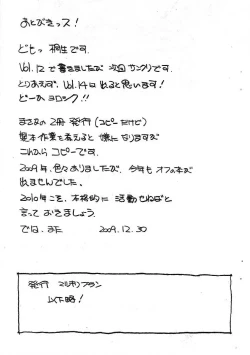 あとがきっス!
どもっ 桐生です。
Vol.12で書きましたが 次回サンクリです。
とりあえず、Vol.14は出ると思います!
どーかヨロシク!!
まさかの2冊発行(コピーだけど)
製本作業を考えると 憂になりますが
これからコピーです。
2009年、色々ありましたが、今年もオフ本が
出ませんでした。
2010年こそ、本格的に活動せねばと
言っておきましょう。
では、また 2009.12.30
発行
以下略!